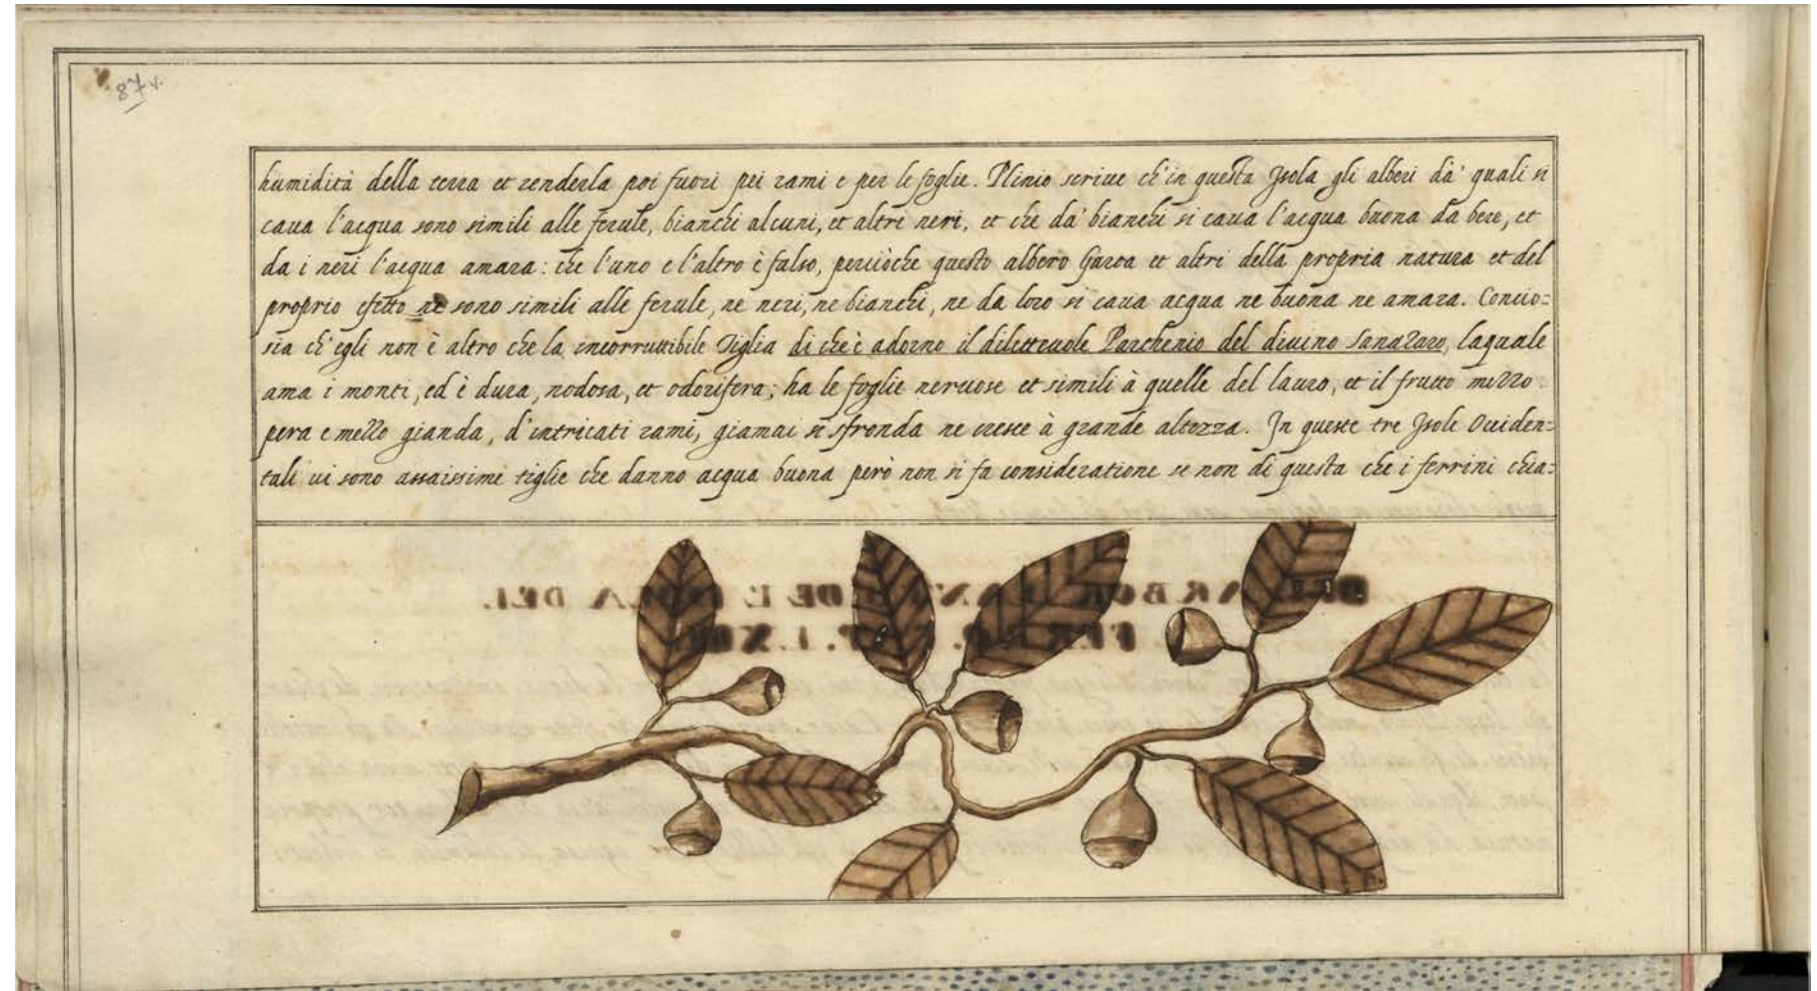 87v.
humidità della terra et renderla poi fuori pei rami e per le foglie. Plinio scriue ch'in questa Isola gli alberi dà quali si
caua l'acqua sono simili alle ferule, bianchi alcuni, et altri neri, et che dà bianchi si caua l'acqua buona da bere, et
da i neri l'acqua amara: che l'uno e l'altro è falso, perciòche questo albero Garoa et altri della propria natura et del
proprio efetto ne sono simili alle ferule, ne neri, ne bianchi, ne da loro si caua acqua ne buona ne amara. Concio=
sia ch'egli non è altro che la incorruttibile Tiglia di che è adorno il diletteuole Parthenio del diuino Sanazaro, laquale
ama i monti, ed è dura, nodosa, et odorifera; ha le foglie neruose et simili à quelle del lauro, et il frutto mezzo
pera e mezzo gianda, d'intricati rami, giamai si sfronda ne cresce à grande altezza. In queste tre Isole Occiden=
tali ui sono assaissime tiglie che danno acqua buona però non si fa consideratione se non di questa che i ferrini chia=